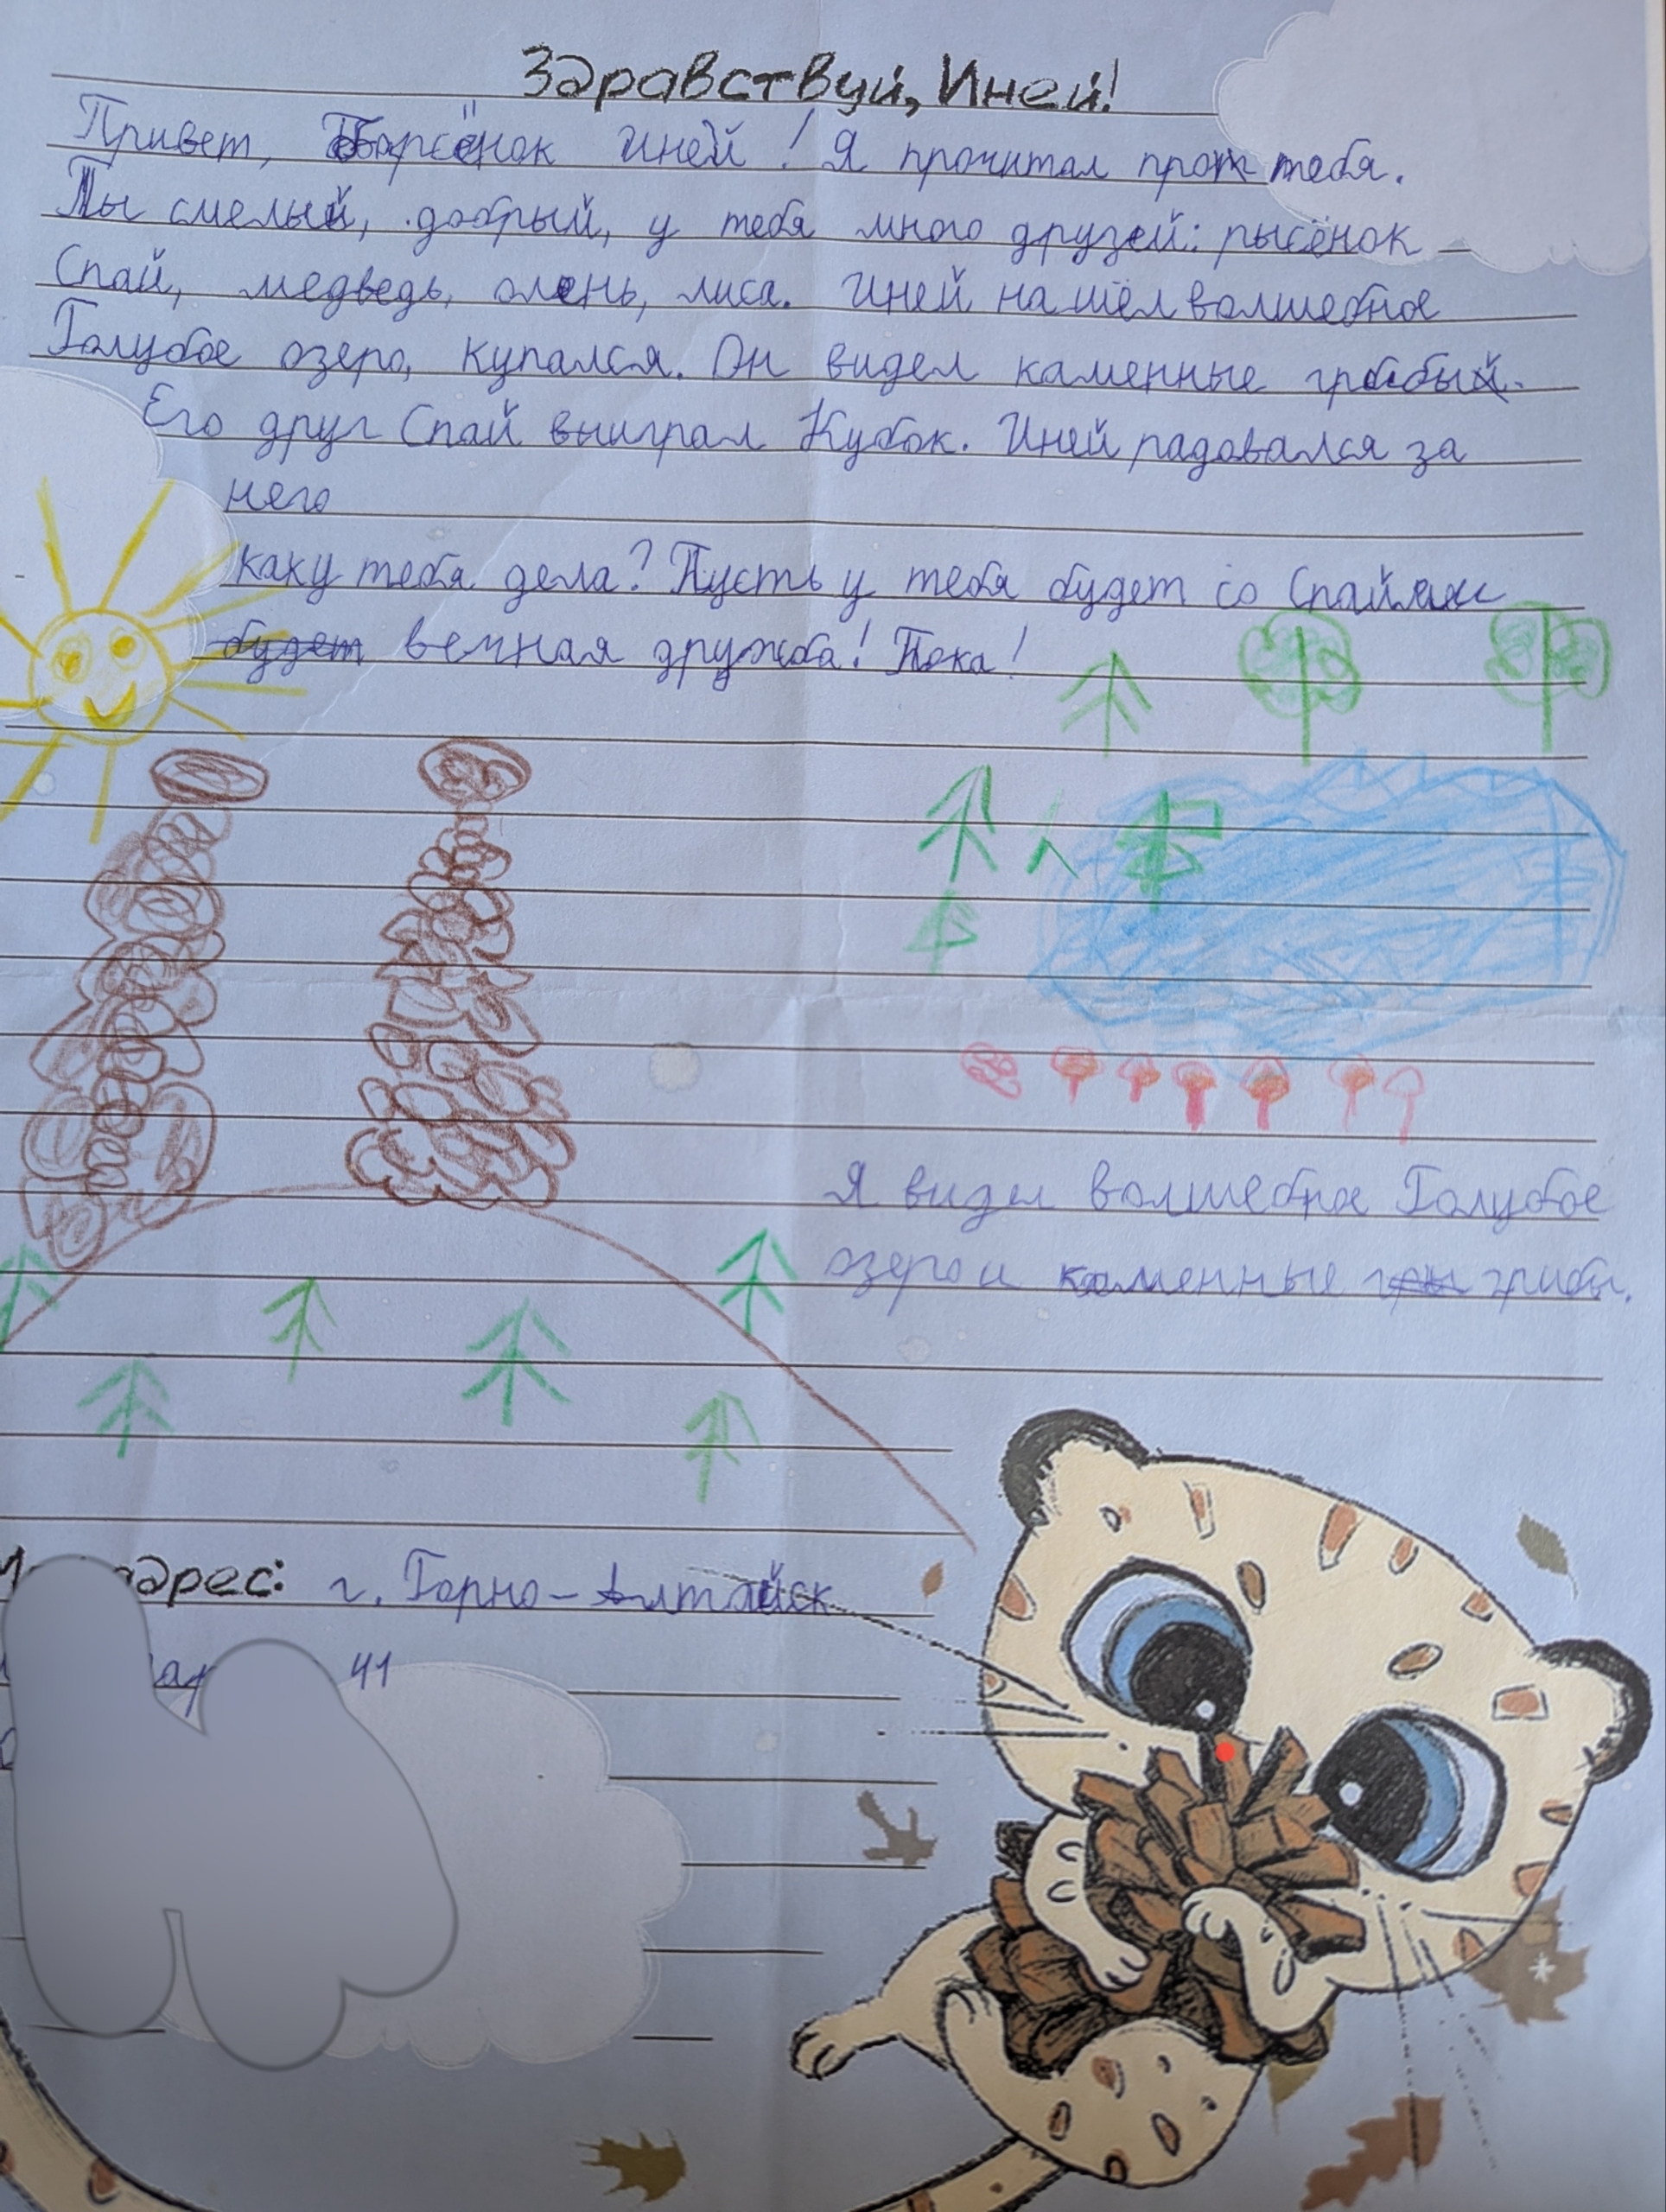 Здравствуй, Иней!
Привет, Барсёнок Иней! Я прочитал про тебя.
Ты смелый, добрый, у тебя много друзей: рысёнок
Спай, медведь, олень, лиса. Иней нашёл волшебное
Голубое озеро, купался. Он видел каменные грибы.
Его друг Спай выиграл Кубок. Иней радовался за
него
каку тебя дела? Пусть у тебя будет со Спайлам
будет вечная дружба! Пока!
Я видел волшебное Голубое
озеро и каменные грибы.
адрес: г. Горно-Алтайск
41